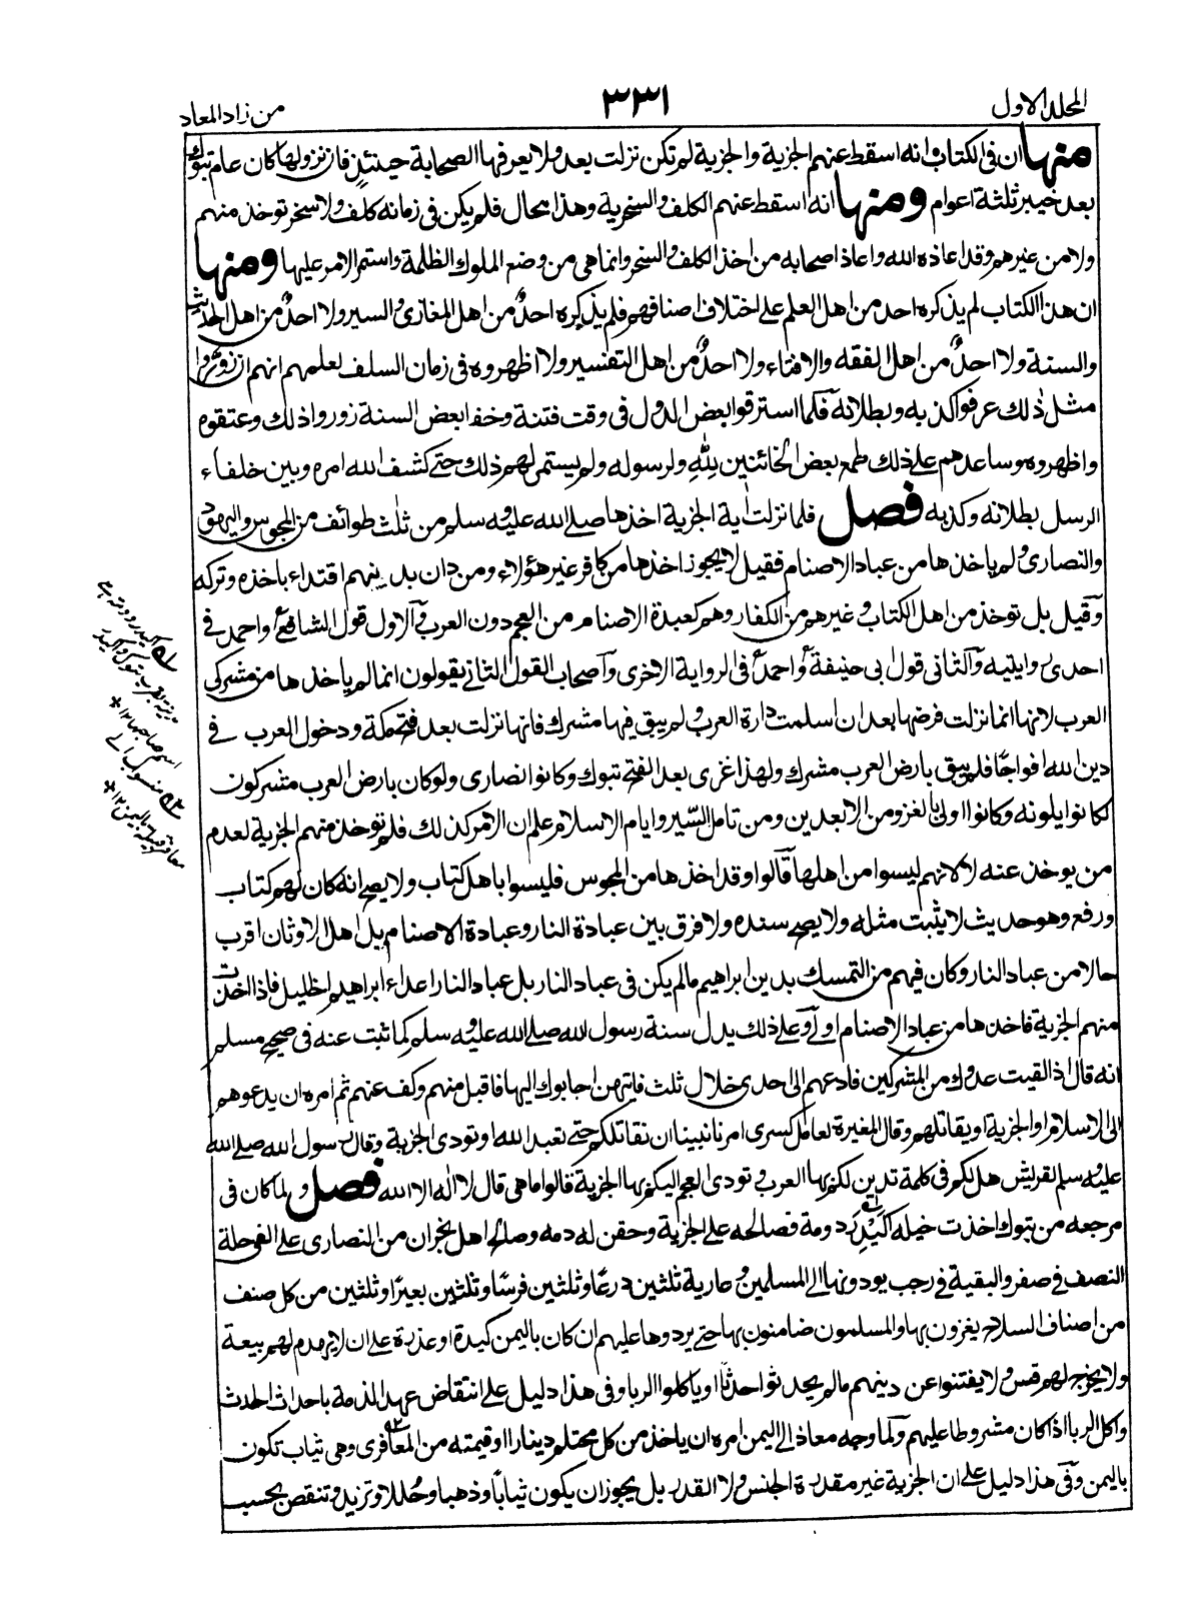 المجلد الاول
٣٣١
من زاد المعاد
منها ان فى الكتاب انه اسقط عنهم الجزية والجزية لم تكن نزلت بعد ولا يعرفها الصحابة حينئذٍ فان نزولها كان عام تبوك
بعد خيبر ثلثة اعوام ومنها انه اسقط عنهم الكلف والسخرية وهذا محال فلم يكن فى زمانه كلف ولا سخر توخذ منهم
ولا من غيرهم وقد اعاذه الله واعاذ اصحابه من اخذ الكلف والسخر وانما هى من وضع الملوك الظلمة واستمر الامر عليها ومنها
ان هذا الكتاب لم يذكره احد من اهل العلم على اختلاف اصنافهم فلم يذكره احدٌ من اهل المغازى والسير ولا احدٌ من اهل الحديث
والسنة ولا احدٌ من اهل الفقه والافتاء ولا احدٌ من اهل التفسير ولا اظهروه فى زمان السلف لعلمهم انهم ان زوّروا
مثل ذلك عرفوا كذبه وبطلانه فلما استرقوا بعض الدول فى وقت فتنة وخفا بعض السنة زوروا ذلك وعتقوه
واظهروه وساعدهم على ذلك طمع بعض الخائنين لِلّٰهِ ولرسوله ولم يستمر لهم ذلك حتى كشف الله امره وبين خلفاء
الرسل بطلانه وكذبه فصل فلما نزلت اية الجزية اخذها صلى الله عليه وسلم من ثلث طوائف من المجوس واليهود
والنصارى ولم ياخذها من عباد الاصنام فقيل لا يجوز اخذها من كافر غير هؤلاء ومن دان بدينهم اقتداء باخذه وتركه
وقيل بل توخذ من اهل الكتاب وغيرهم من الكفار وهم كعبدة الاصنام من العجم دون العرب والاول قول الشافعى واحمد فى
احدى وايتيه والثانى قول ابى حنيفة واحمد فى الرواية الاخرى واصحاب القول الثانى يقولون انما لم ياخذها من مشركى
العرب لانها انما نزلت فرضها بعد ان اسلمت دارة العرب ولم يبق فيها مشرك فانها نزلت بعد فتح مكة ودخول العرب فى
دين الله افواجًا فلم يبقى بارض العرب مشرك ولهذا غزى بعد الفتح تبوك وكانوا نصارى ولو كان بارض العرب مشركون
لكانوا يلونه وكانوا اولى بالغزو من الابعدين ومن تامل السّير وايام الاسلام علم ان الامر كذلك فلم توخذ منهم الجزية لعدم
من يوخذ عنه لا لانهم ليسوا من اهلها قالوا وقد اخذها من المجوس فليسوا باهل كتاب ولا يصح انه كان لهم كتاب
ورفع وهو حديث لا يثبت مثله ولا يصح سنده ولا فرق بين عبادة النار وعبادة الاصنام بل اهل الاوثان اقرب
حالا من عباد النار وكان فيهم من التمسك بدين ابراهيم مالم يكن فى عباد النار بل عباد النار اعداء ابراهيم الخليل فاذا اخذت
منهم الجزية فاخذها من عباد الاصنام اولى وعلى ذلك يدل سنة رسول الله صلى الله عليه وسلم كما ثبت عنه فى صحيح مسلم
انه قال اذا لقيت عدوك من المشركين فادعهم الى احدى خلال ثلث فايتهن اجابوك اليها فاقبل منهم وكف عنهم ثم امره ان يدعوهم
الى الاسلام او الجزية او يقاتلهم وقال المغيرة لعامل كسرى امرنا نبينا ان نقاتلكم حتى تعبد الله او تودى الجزية وقال رسول الله صلى الله
عليه وسلم لقريش هل لكم فى كلمة تدين لكم بها العرب وتودى العجم اليكم بها الجزية قالوا ما هى قال لا اله الا الله فصل ولما كان فى
مرجعه من تبوك اخذت خيله اكَيْدِرَ دومة فصالحه على الجزية وحقن له دمه وصالح اهل نجران من النصارى على الفى حلة
النصف فى صفر والبقية فى رجب يودونها الى المسلمين وعارية ثلثين درعًا وثلثين فرسًا وثلثين بعيرًا وثلثين من كل صنف
من اصناف السلاح يغزون بها والمسلمون ضامنون بها حتى يردوها عليهم ان كان باليمن كيدة او عذرة على ان لا يهدم لهم بيعة
ولا يخرج لهم قس ولا يفتنوا عن دينهم مالم يحدثوا حدثًا او ياكلوا الربا وفى هذا دليل على انتقاض عهد الذمة باحداث الحدث
واكل الربا اذا كان مشروطا عليهم ولما وجه معاذا الى اليمن امره ان ياخذ من كل محتلم دينارا او قيمته من المعافرى وهى ثياب تكون
باليمن وفى هذا دليل على ان الجزية غير مقدرة الجنس ولا القدر بل يجوز ان يكون ثيابًا وذهبا وحُللا وتزيد وتنقص بحسب